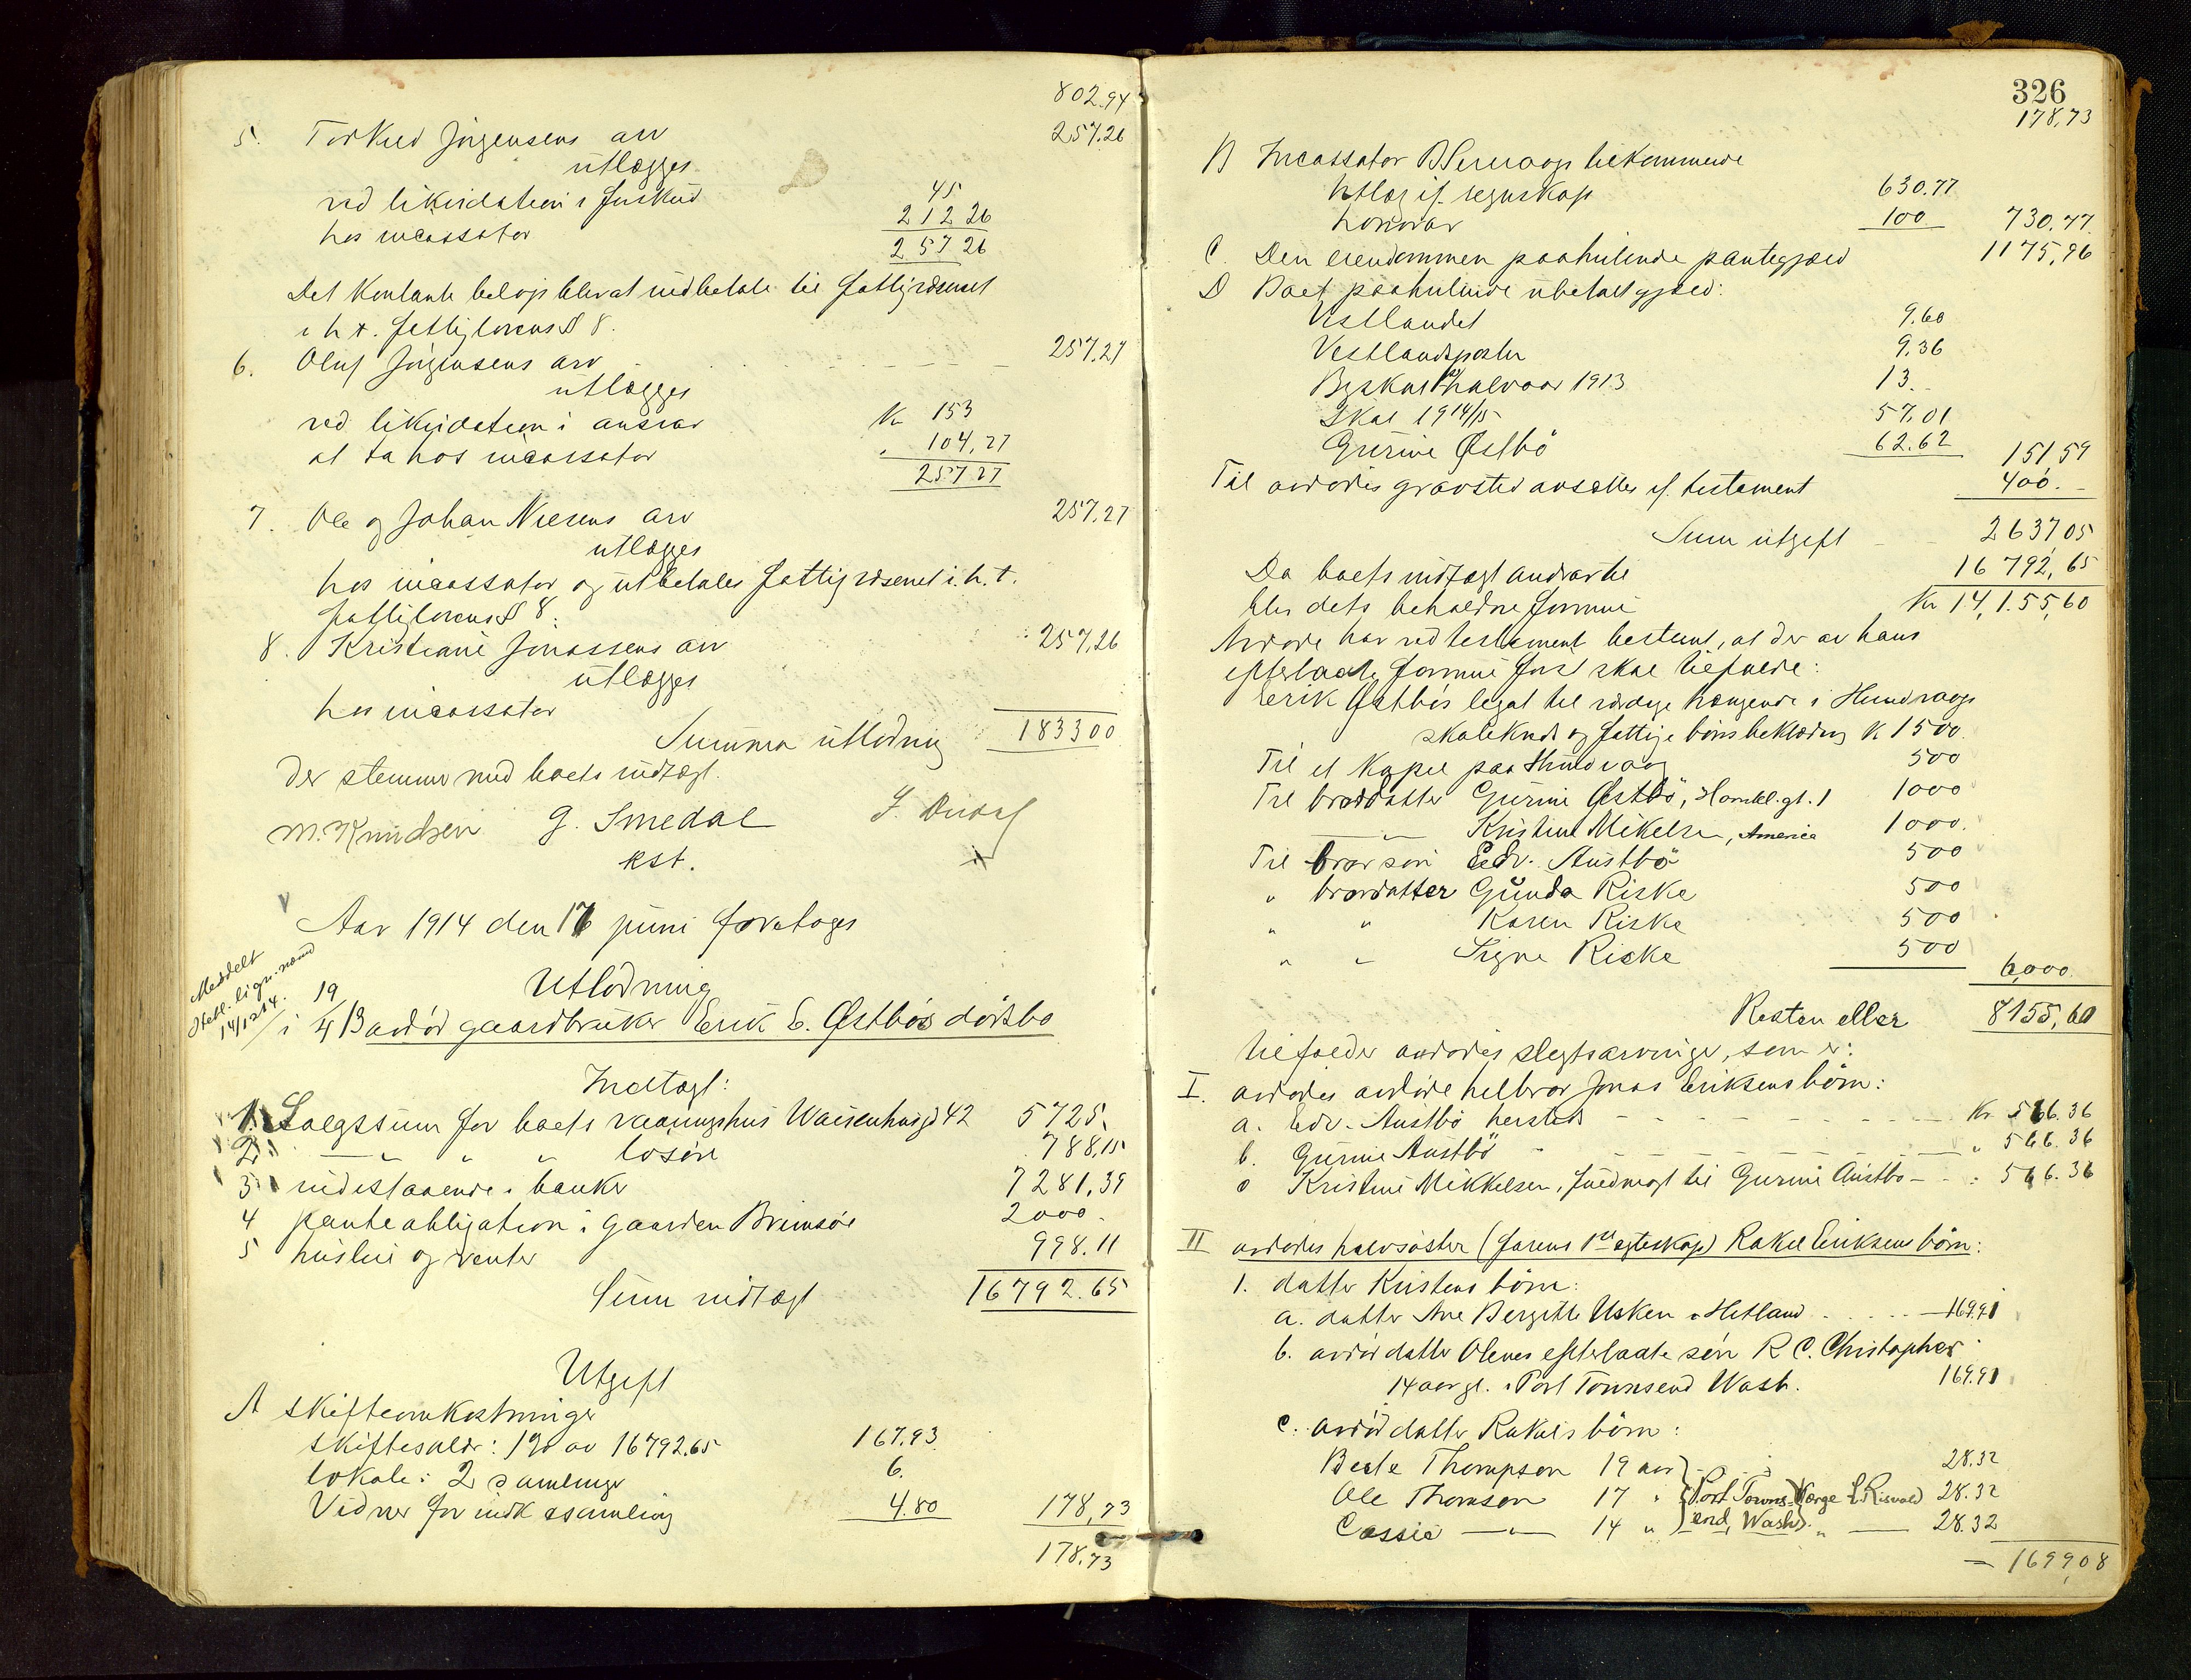 802.94
5. Torkel Jörgensens arv 257.26
utlægges
ved likvidation i forskud 45
hos incassator 212 26
257 26
Det kontante belöp blir at indbetale til fattigvæsenet
i h.t. fattiglovens § 8.
6. Oluf Jörgensens arv 257.27
utlægges
ved likvidation i ansvar Kr 153
at ta hos incassator " 104,27
257 27
7. Ole og Johan Nielsens arv 257.27
utlægges
hos incassator og utbetales fattigvæsenet i.h.t.
fattiglovens § 8.
8. Kristiane Jonassens arv 257,26
utlægges
hos incassator
Summa utlodning 183300
Der stemmer med boets indtægt.
M. Knudsen G. Smedal
kst.
Aar 1914 den 16 juni foretoges
Utlodning
Meddelt
Hetl. lign.nævnd
14/12 14.
i 19/4 13 avdöd gaardbruker Erik E. Østbös dödsbo
Indtægt:
1. Salgssum for boets vaaningshus Waisenhusgd 42 5725.
2. — " " " lösöre 788,15
3 indestaaende i banker 7281,39
4 panteobligation i gaarden Brimsöe 2000.
5 husleie og renter 998.11
Sum indtægt 16792.65
Utgift
A Skifteomkostninger
Skiftesalær: 1% av 16792.65 167.93
lokale: 2 samlinger 6.
Vidner for indk. samling 4.80 178,73
178,73
326
178,73
B Incassator B. tilkommende
Utlæg if. regnskap 630.77
honorar 100 730.77
C. Den eiendommen paahvilende pantegjæld 1175,96
D Boet paahvilende ubetalt gjæld:
Vestlandet 9.60
Vestlandsposten 9.36
Byskat 1ste halvaar 1913 13.
Skat 1914/15 57,01
Gurine Østbö 62.62 151 59
Til avdödes gravsted avsættes if. testament 400.-
Sum utgift 2637 05
Da boets indtægt andrar til 16 792,65
blir dets beholdne formue Kr 14,155,60
Avdöde har ved testament bestemt, at der av hans
efterladte formue först skal tilfalde:
Erik Østbös legat til værdige trængende i Hundvaag
skolekreds og fattige börns beklædning K 1500.
Til et kapel paa Hundvaag 500
Til brordatter Gurine Østbö, Hornkl.gt. 1 1000
— " — Kristine Mikelsen, America 1000.
Til brorsön Edv. Austbö 500
" brordatter Gunda Riske 500
" " Karen Riske 500
" " Signe Riske 500
6,000.
Resten eller 8155,60
tilfalder avdödes slegtsarvinger, som er:
I. avdödes avdöde helbror Jonas Eriksens börn:
a. Edv. Austbö hersteds Kr 566.36
b. Gurine Austbö " 566.36
c Kristine Mikkelsen, fuldmagt til Gurine Austbö - " 566.36
II avdödes halvsöster (farens 1ste egteskap) Rakel Eriksens börn:
1. datter Kristens börn:
a. datter Ane Bergitte Usken i Hetland 169.91
b. avdöd datter Olenes efterladte sön R C. Christopher
14 aar gl. i Port Townsend Wash. 169.91
c. avdöd datter Rakels börn:
Beate Thompson 19 aar 28.32
Ole Thomson 17 " Port Towns- Værge L. Risvold 28.32
Cassie — " — 14 " end, Wash. " — 28.32
= 1699,08